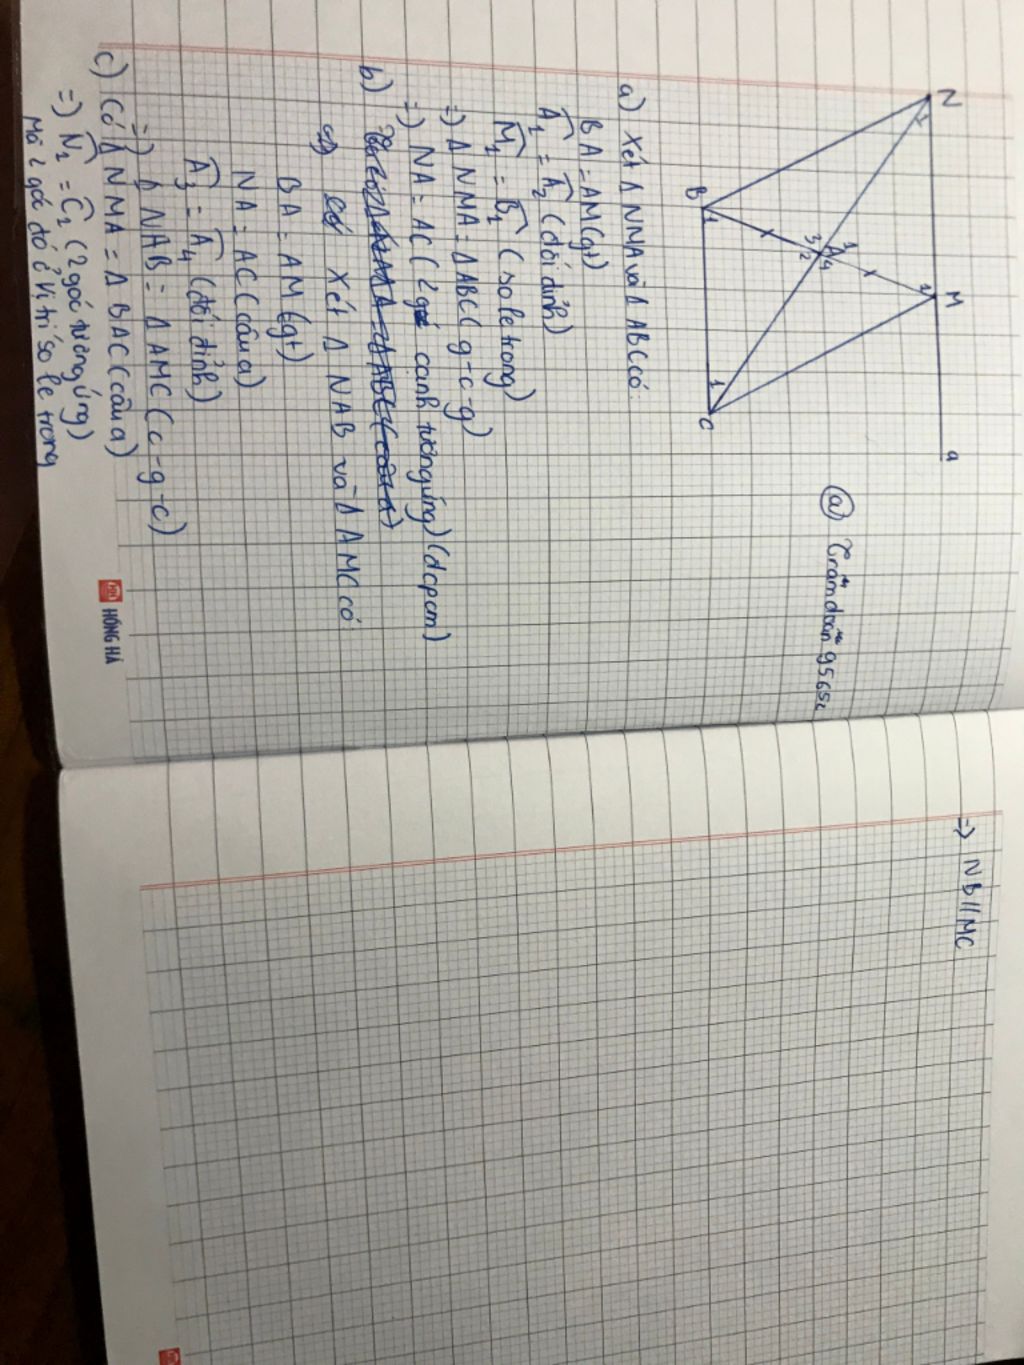 N
M
a
1
1
3
1
A
2
4
B
1
1
C
@ Trâmdoan95652
a) Xét Δ NNA và Δ ABC có:
BA = AM (gt)
Â1 = Â2 (đối đỉnh)
M̂1 = B̂1 (so le trong)
=) Δ NMA = Δ ABC (g-c-g)
=) NA = AC (2 cạnh tương ứng) (đcpcm)
b)
Xét Δ NAB và Δ AMC có:
BA = AM (gt)
NA = AC (câu a)
Â3 = Â4 (đối đỉnh)
=) Δ NAB = Δ AMC (c-g-c)
c) Có Δ NMA = Δ BAC (câu a)
=) N̂1 = Ĉ1 (2 góc tương ứng)
Mà 2 góc đó ở vị trí so le trong
HỒNG HÀ
=) NB // MC